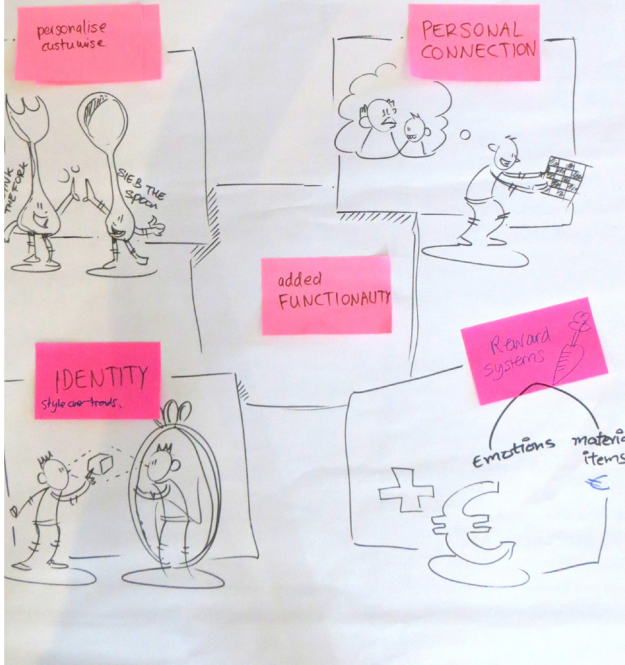 personalise
custumise
PERSONAL
CONNECTION
THE FORK
SIEB THE
SPOON
added
FUNCTIONALITY
IDENTITY
Reward
systems
Emotions
items
€
€